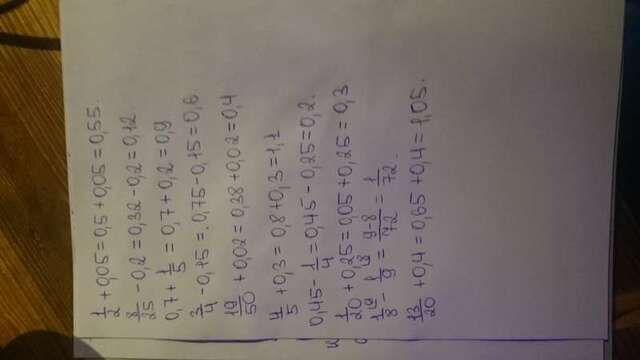 1/2 + 0,05 = 0,5 + 0,05 = 0,55.
8/25 - 0,2 = 0,32 - 0,2 = 0,12.
0,7 + 1/5 = 0,7 + 0,2 = 0,9
3/4 - 0,15 = 0,75 - 0,15 = 0,6.
19/50 + 0,02 = 0,38 + 0,02 = 0,4
4/5 + 0,3 = 0,8 + 0,3 = 1,1
0,45 - 1/4 = 0,45 - 0,25 = 0,2.
1/20 + 0,25 = 0,05 + 0,25 = 0,3
1/8 (9 - 1/9 (8 = 9-8/72 = 1/72.
13/20 + 0,4 = 0,65 + 0,4 = 1,05.